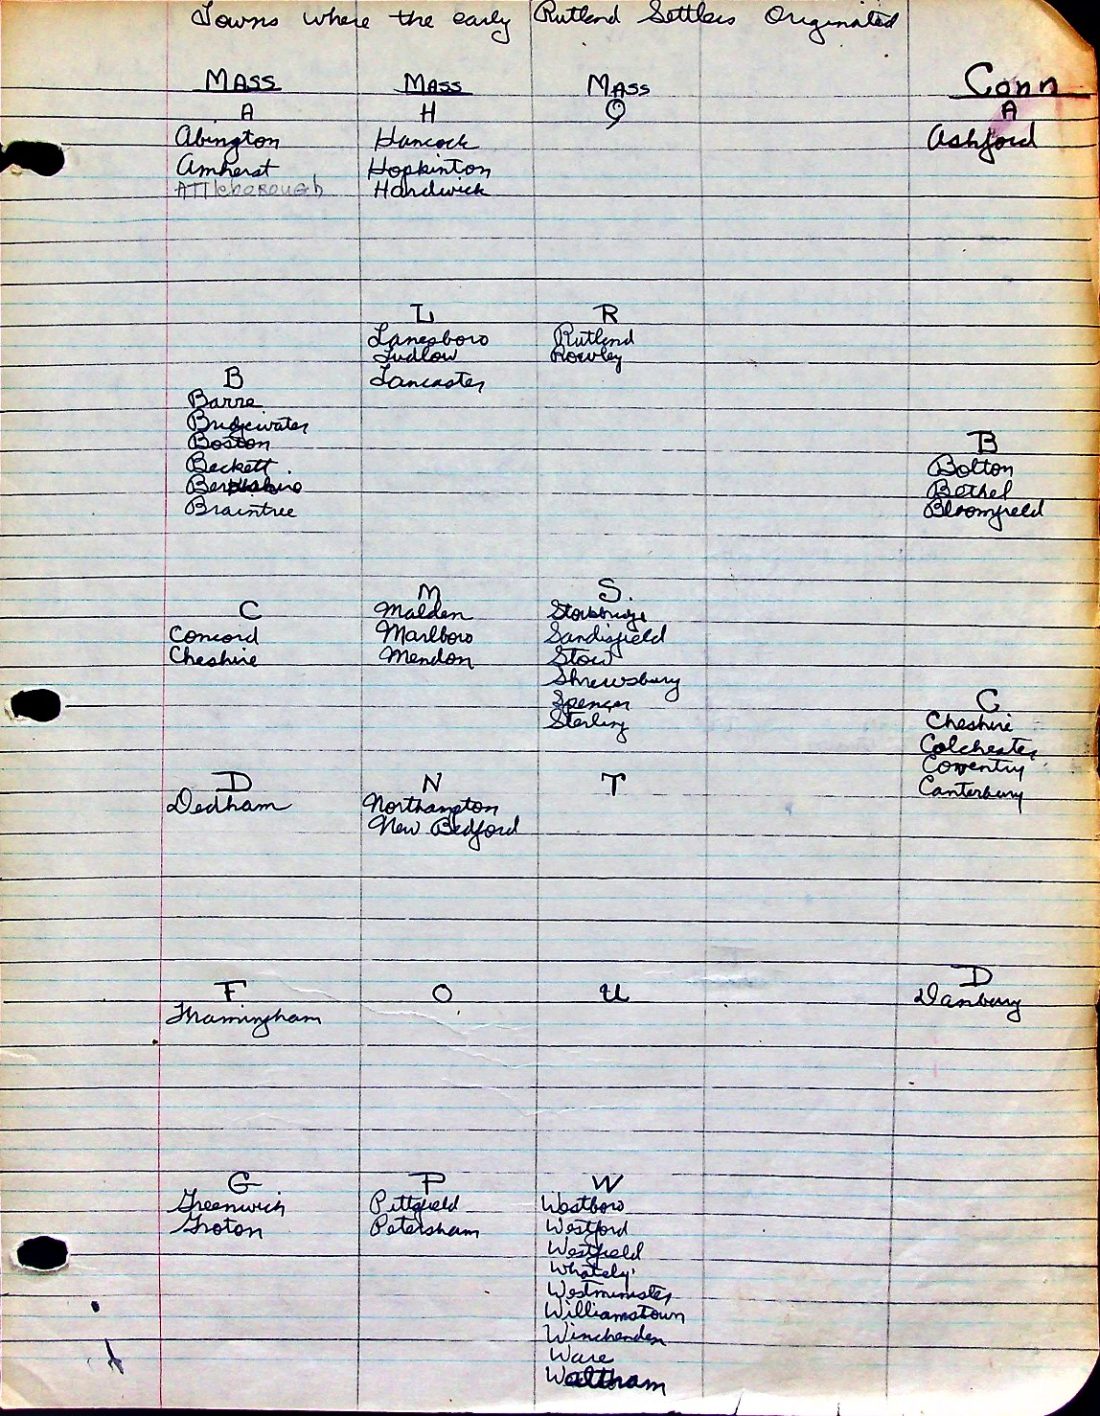 Towns where the early Rutland Settlers Originated
Mass
A
Abington
Amherst
Attleborough
B
Barre
Bridgewater
Boston
Beckett
Braintree
C
Concord
Cheshire
D
Dedham
F
Framingham
G
Greenwich
Groton
Mass
H
Hancock
Hopkinton
Hardwick
L
Lanesboro
Ludlow
Lancaster
M
Malden
Marlboro
Mendon
N
Northampton
New Bedford
O
P
Pittsfield
Petersham
Mass
Q
R
Rutland
Rowley
S.
Sandisfield
Stow
Shrewsbury
Spencer
Sterling
T
U
W
Westboro
Westford
Westfield
Whately
Westminister
Williamstown
Winchenden
Ware
Waltham
Conn
A
Ashford
B
Bolton
Bethel
Bloomfield
C
Cheshire
Colchester
Coventry
Canterbury
D
Danbury